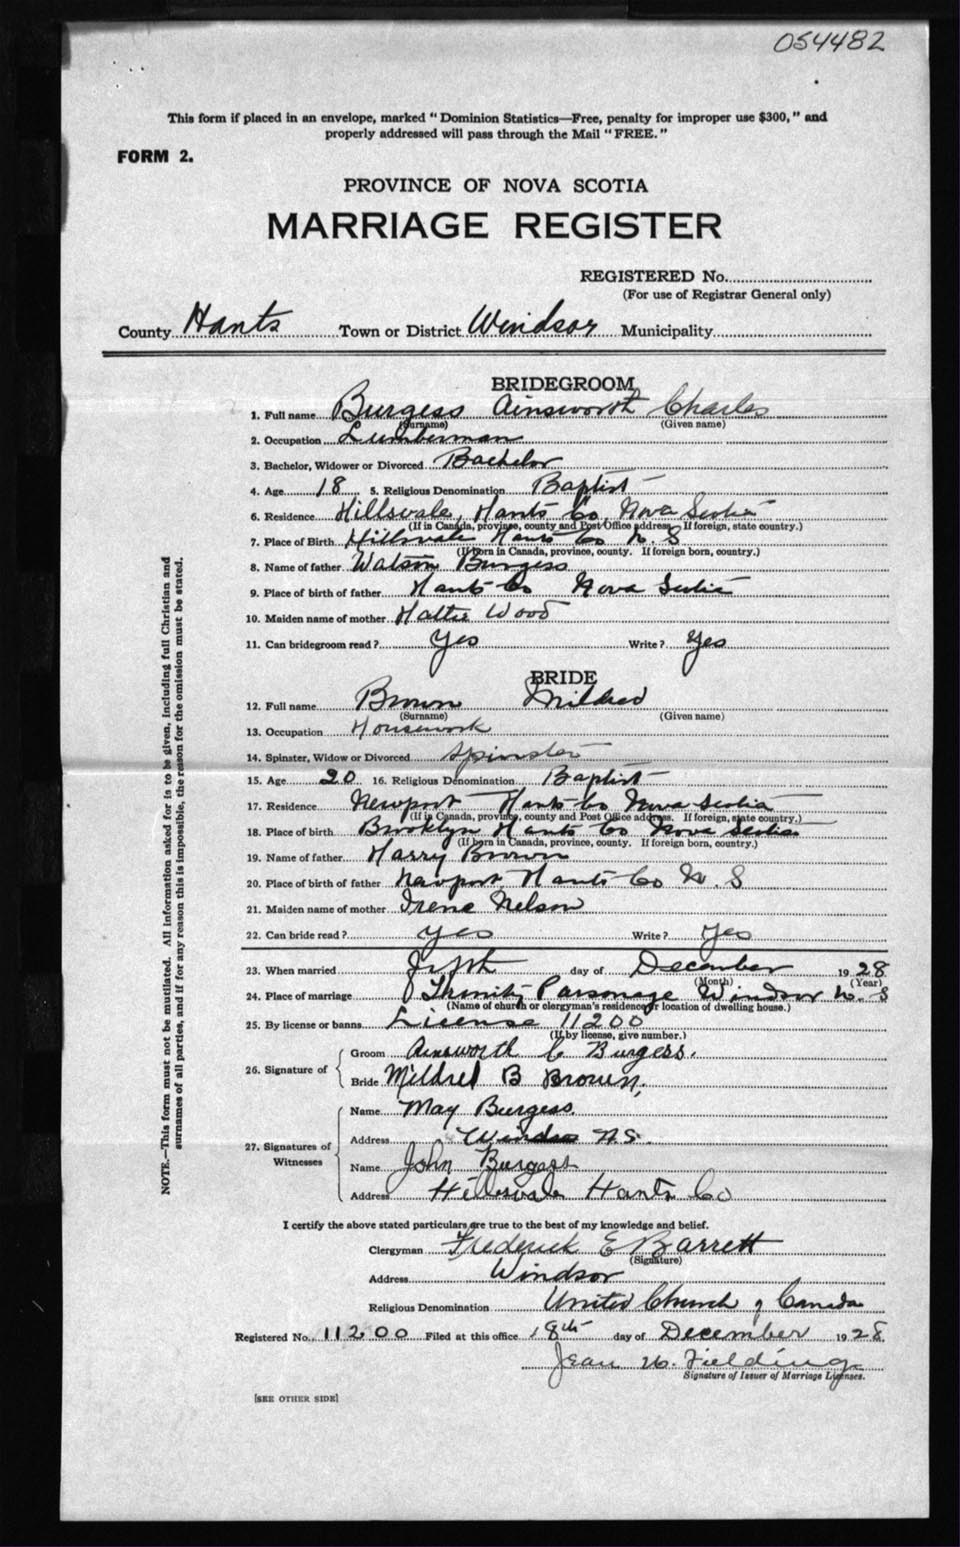 054482
This form if placed in an envelope, marked "Dominion Statistics—Free, penalty for improper use $300," and
properly addressed will pass through the Mail "FREE."
FORM 2.
PROVINCE OF NOVA SCOTIA
MARRIAGE REGISTER
REGISTERED No.
(For use of Registrar General only)
County Hants Town or District Windsor Municipality
BRIDEGROOM
1. Full name Burgess Ainsworth Charles
(Surname) (Given name)
2. Occupation Lumberman
3. Bachelor, Widower or Divorced Bachelor
4. Age 18 5. Religious Denomination Baptist
6. Residence Hillsvale, Hants Co, Nova Scotia
(If in Canada, province, county and Post Office address. If foreign, state country.)
7. Place of Birth Hillsvale Hants Co N. S
(If born in Canada, province, county. If foreign born, country.)
8. Name of father Watson Burgess
9. Place of birth of father Hants Co Nova Scotia
10. Maiden name of mother Hattie Wood
11. Can bridegroom read? Yes Write? Yes
BRIDE
12. Full name Brown Mildred
(Surname) (Given name)
13. Occupation Housework
14. Spinster, Widow or Divorced Spinster
15. Age 20 16. Religious Denomination Baptist
17. Residence Newport Hants Co Nova Scotia
(If in Canada, province, county and Post Office address. If foreign, state country.)
18. Place of birth Brooklyn Hants Co Nova Scotia
(If born in Canada, province, county. If foreign born, country.)
19. Name of father Harry Brown
20. Place of birth of father Newport Hants Co N. S
21. Maiden name of mother Irene Nelson
22. Can bride read? Yes Write? Yes
23. When married Fifth day of December 1928
(Month) (Year)
24. Place of marriage Trinity Parsonage Windsor N. S
(Name of church or clergyman's residence or location of dwelling house.)
25. By license or banns License 11200
(If by license, give number.)
26. Signature of
Groom Ainsworth C Burgess.
Bride Mildred B Brown,
27. Signatures of Witnesses
Name May Burgess
Address Windsor N.S.
Name John Burgess
Address Hillsvale Hants Co
I certify the above stated particulars are true to the best of my knowledge and belief.
Clergyman Frederick E Barrett
(Signature)
Address Windsor
Religious Denomination United Church of Canada
Registered No. 11200 Filed at this office 18th day of December 1928
Jean W. Fielding
Signature of Issuer of Marriage Licenses.
[SEE OTHER SIDE]
NOTE.—This form must not be mutilated. All information asked for is to be given, including full Christian and
surnames of all parties, and if for any reason this is impossible, the reason for the omission must be stated.